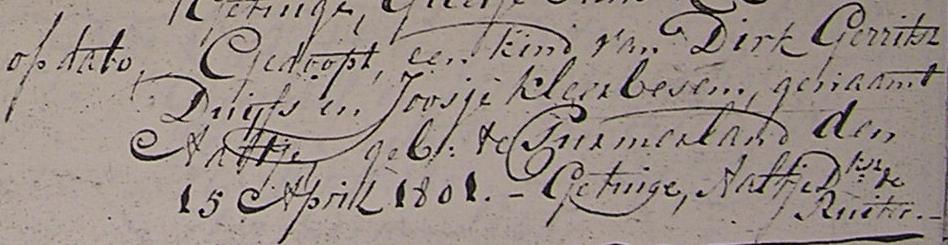 Getuige,
op dato, Gedoopt, een kind van Dirk Gerritsz
Duijfs en Joosje Kleerbesem, genaamt
Aaltje, geb: te Purmerland den
15 April 1801. - Getuige, Aaltje Dksr de
Ruiter. -